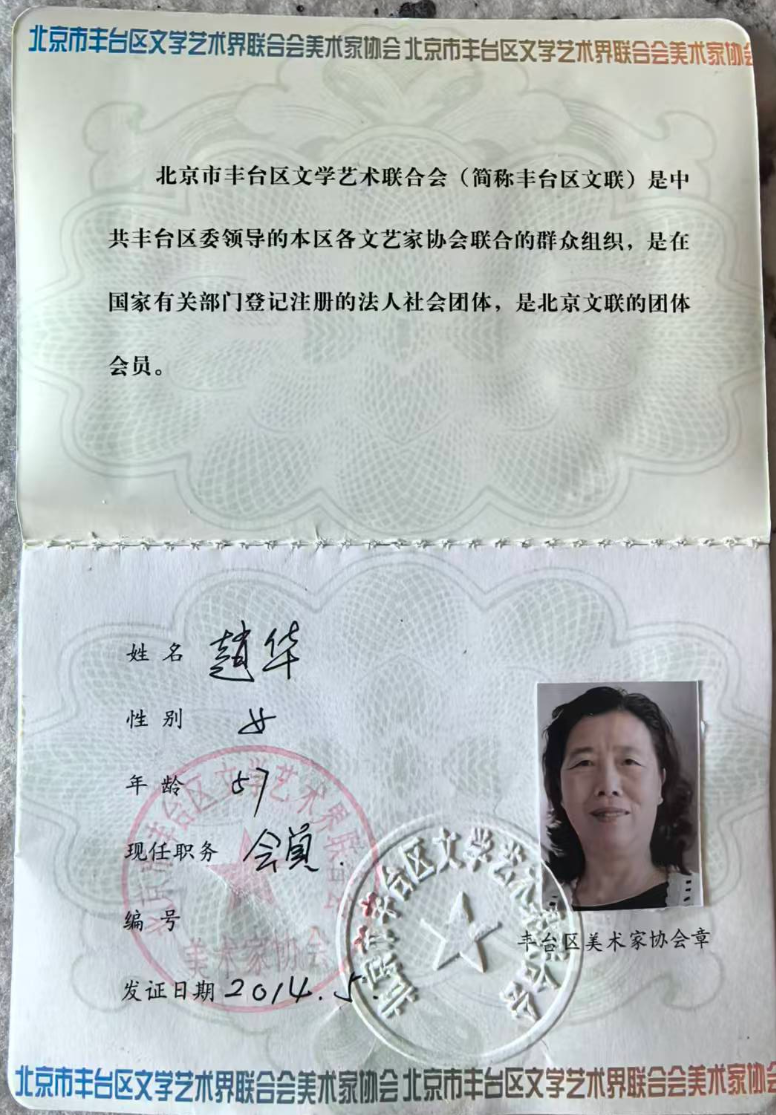 北京市丰台区文学艺术界联合会美术家协会 北京市丰台区文学艺术界联合会美术家协会
北京市丰台区文学艺术联合会（简称丰台区文联）是中
共丰台区委领导的本区各文艺家协会联合的群众组织，是在
国家有关部门登记注册的法人社会团体，是北京文联的团体
会员。
姓名 趙华
性别 女
年龄 57
现任职务 会員.
编号
发证日期 2014.5.
北京市丰台区文学艺术界联合会
美术家协会
北京市丰台区文学艺术界联合会
丰台区美术家协会章
北京市丰台区文学艺术界联合会美术家协会 北京市丰台区文学艺术界联合会美术家协会